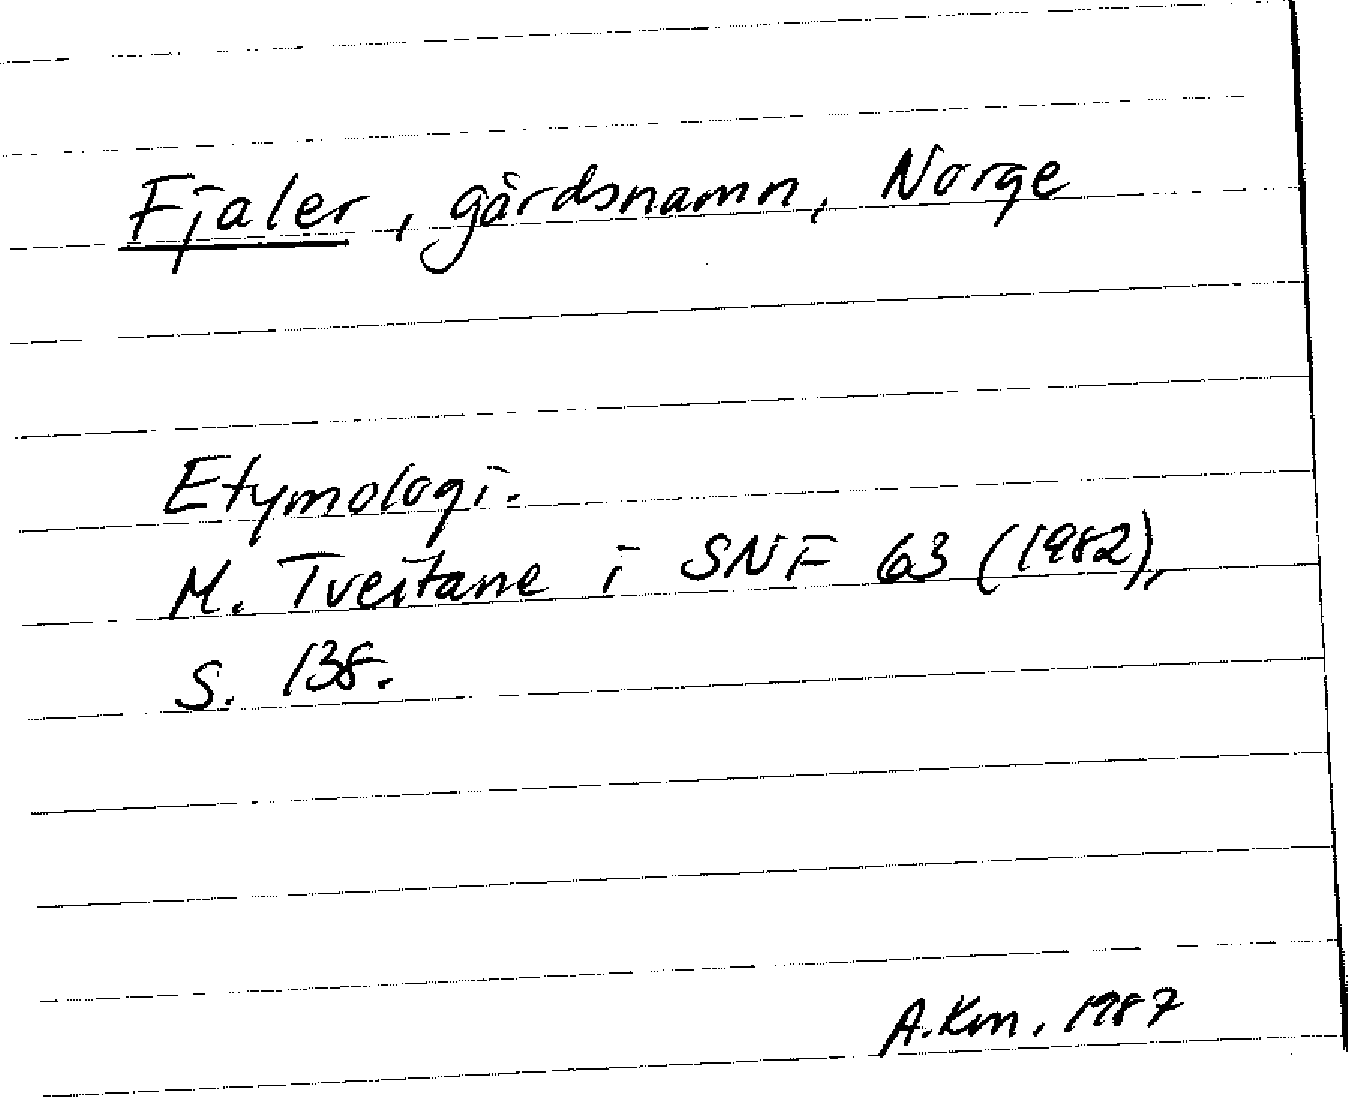 Fjaler, gårdsnamn, Norge
Etymologi.
M. Tveitane i SNF 63 (1982),
S. 138.
A.Km. 1987